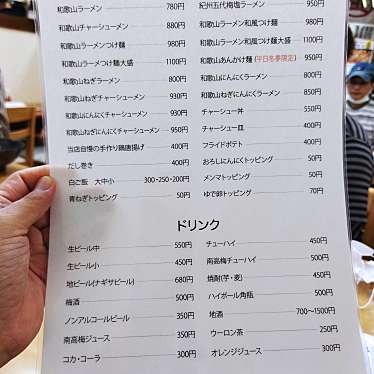 和歌山ラーメン 780円
和歌山チャーシューメン 880円
和歌山ラーメンつけ麺 980円
和歌山ラーメンつけ麺大盛 1100円
和歌山ねぎラーメン 800円
和歌山ねぎチャーシューメン 930円
和歌山にんにくチャーシューメン 930円
和歌山ねぎにんにくチャーシューメン 950円
当店自慢の手作り鶏唐揚げ 400円
だし巻き 400円
白ご飯 大中小 300・250・200円
青ねぎトッピング 50円
紀州五代梅塩ラーメン 950円
和歌山ラーメン和風つけ麺 980円
和歌山ラーメン和風つけ麺大盛 1100円
和歌山あんかけ麺 (平日冬季限定) 950円
和歌山にんにくラーメン 800円
和歌山ねぎにんにくラーメン 850円
チャーシュー丼 550円
チャーシュー皿 400円
フライドポテト 400円
おろしにんにくトッピング 50円
メンマトッピング 50円
ゆで卵トッピング 70円
ドリンク
生ビール中 550円
生ビール小 450円
地ビール(ナギサビール) 680円
梅酒 500円
ノンアルコールビール 350円
南高梅ジュース 350円
コカ・コーラ 300円
チューハイ 450円
南高梅チューハイ 500円
焼酎(芋・麦) 450円
ハイボール角瓶 500円
地酒 700〜1500円
ウーロン茶 250円
オレンジジュース 300円